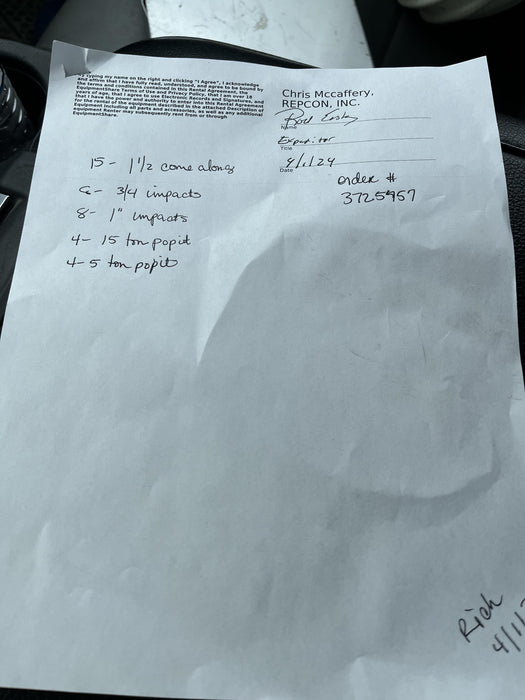 By typing my name on the right and clicking "I Agree", I acknowledge
and affirm that I have fully read, understood, and agree to be bound by
the terms and conditions contained in this Rental Agreement, the
EquipmentShare Terms of Use and Privacy Policy, that I am over 18
years of age, that I agree to use Electronic Records and Signatures, and
that I have the power and authority to enter into this Rental Agreement
for the rental of the equipment described in the attached Description of
Equipment including all parts and accessories, as well as any additional
equipment Renter may subsequently rent from or through
EquipmentShare.
Chris Mccaffery,
REPCON, INC.
Name
Expeditor
Title
4/1/24
Date
order #
3725957
15 - 1 1/2 come along
3/4 impacts
8- 1" impacts
4- 15 ton popit
4- 5 ton popit
Rich
4/1/